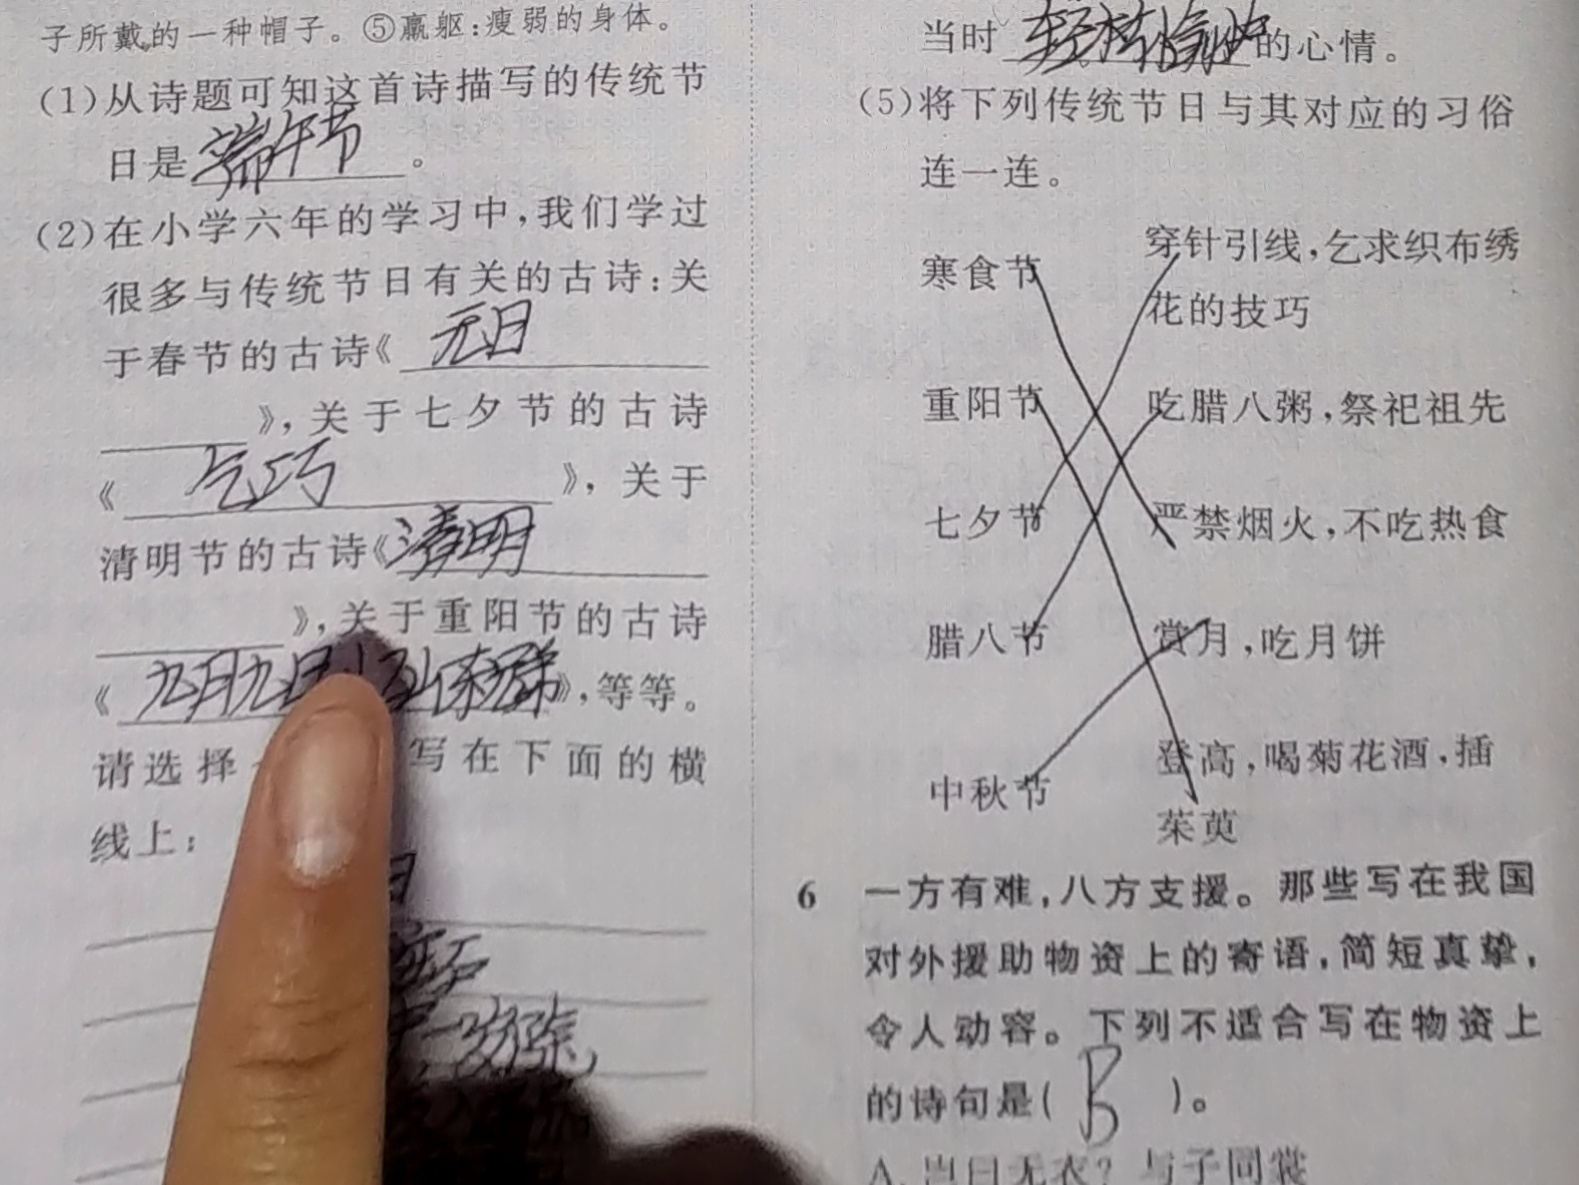 子所戴的一种帽子。⑤羸躯：瘦弱的身体。
(1)从诗题可知这首诗描写的传统节
日是端午节。
(2)在小学六年的学习中，我们学过
很多与传统节日有关的古诗：关
于春节的古诗《元日
》，关于七夕节的古诗
《乞巧》，关于
清明节的古诗《清明
》，关于重阳节的古诗
《九月九日忆山东兄弟》，等等。
请选择 写在下面的横
线上：
日
一岁除，
当时轻松愉快的心情。
(5)将下列传统节日与其对应的习俗
连一连。
寒食节 穿针引线，乞求织布绣
花的技巧
重阳节 吃腊八粥，祭祀祖先
七夕节 严禁烟火，不吃热食
腊八节 赏月，吃月饼
中秋节 登高，喝菊花酒，插
茱萸
6 一方有难，八方支援。那些写在我国
对外援助物资上的寄语，简短真挚，
令人动容。下列不适合写在物资上
的诗句是( B )。
A. 岂曰无衣？与子同裳